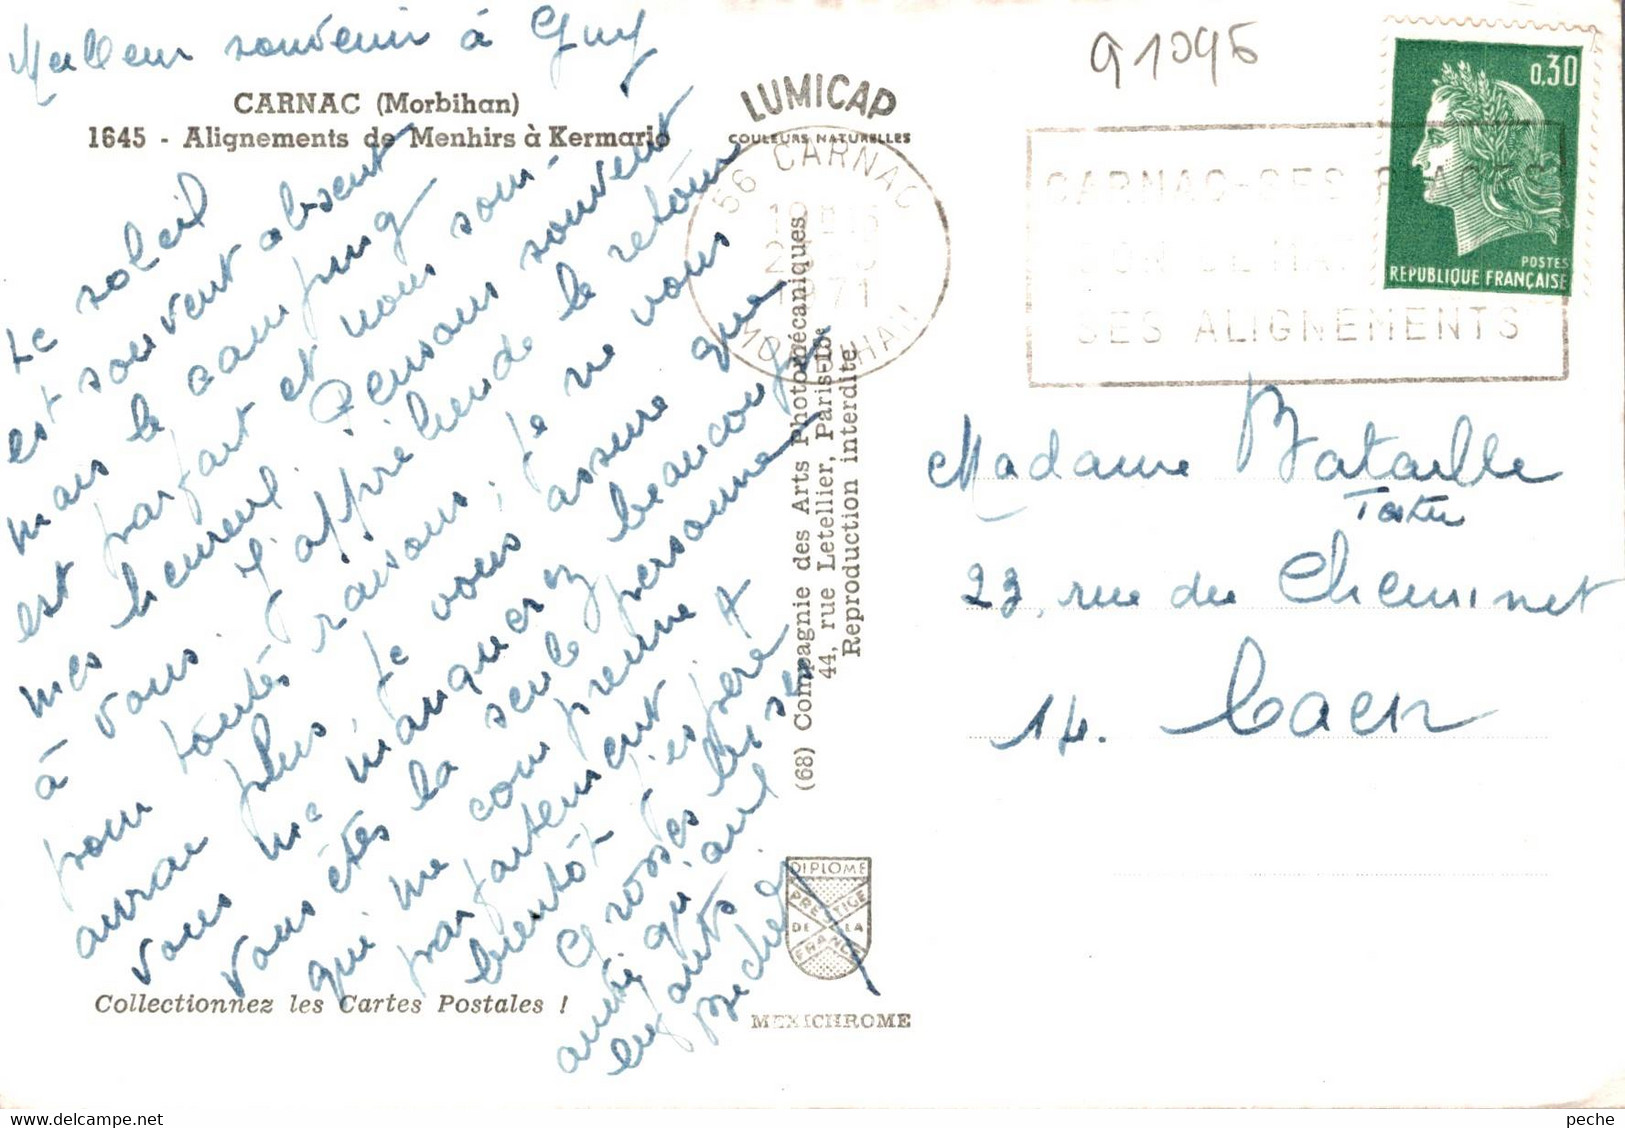 Meilleur souvenir à Guy
CARNAC (Morbihan)
1645 - Alignements de Menhirs à Kermario
Le soleil
est souvent absent
mais le camping
est parfait et nous sommes
mes heureux. Pensons souvent
à vous. J'appréhende le retour
pour toutes raisons, je ne vous
aurai plus, je vous assure que
vous me manquerez beaucoup
vous êtes la seule personne
qui me comprenne
parfaitement. A
bientôt j'espère
Grosses bises
ainsi qu'aux
enfants
Michel
Collectionnez les Cartes Postales !
LUMICAP
COULEURS NATURELLES
(68) Compagnie des Arts Photomécaniques
44, rue Letellier, Paris-15e
Reproduction interdite
DIPLOME
PRESTIGE
DE LA
FRANCE
MEXICHROME
91095
56 CARNAC
1971
MORBIHAN
CARNAC-SES PLAGES
SES ALIGNEMENTS
0,30
POSTES
REPUBLIQUE FRANÇAISE
Madame Bataille
23, rue du Cheminet
14. Caen
peche